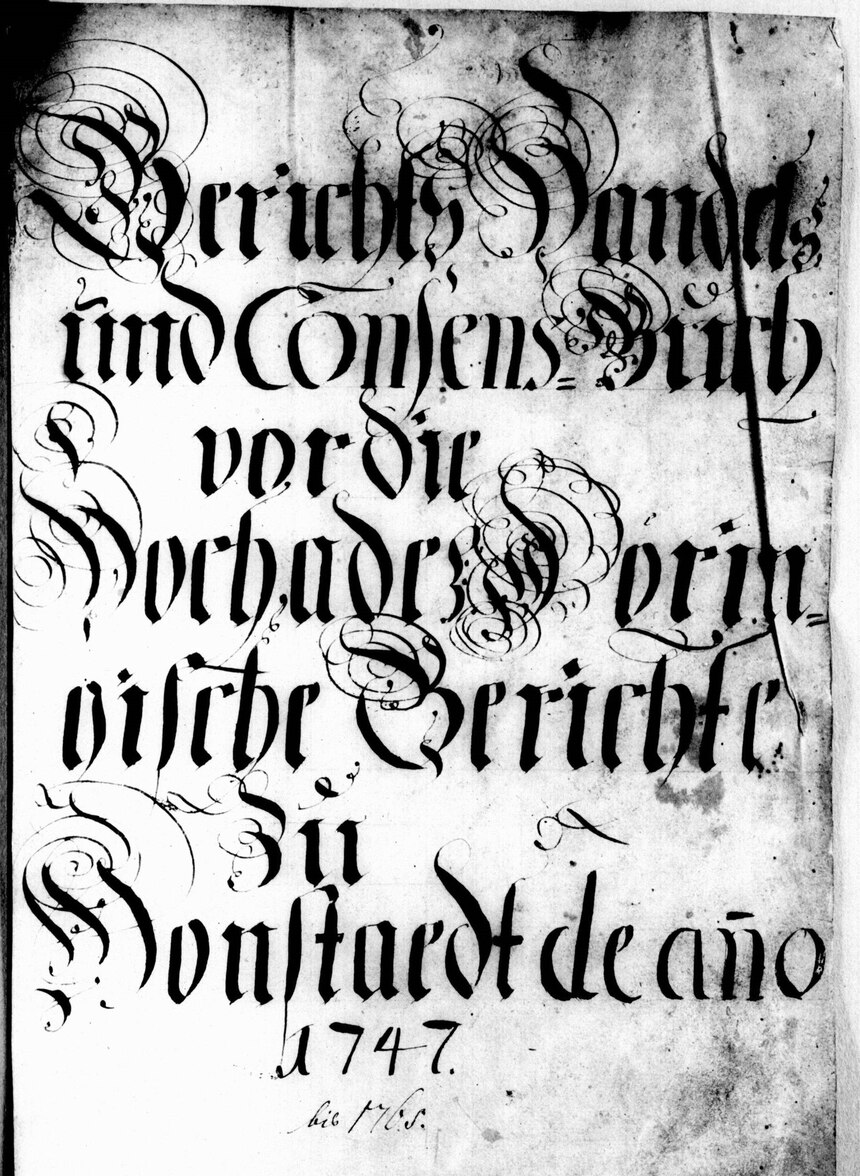 Gerichts Handels
und Consens=Buch
vor die
Hochadel Dörin=
gische Gerichte
Zu
Honstaedt de año
1747.
bis 1765.